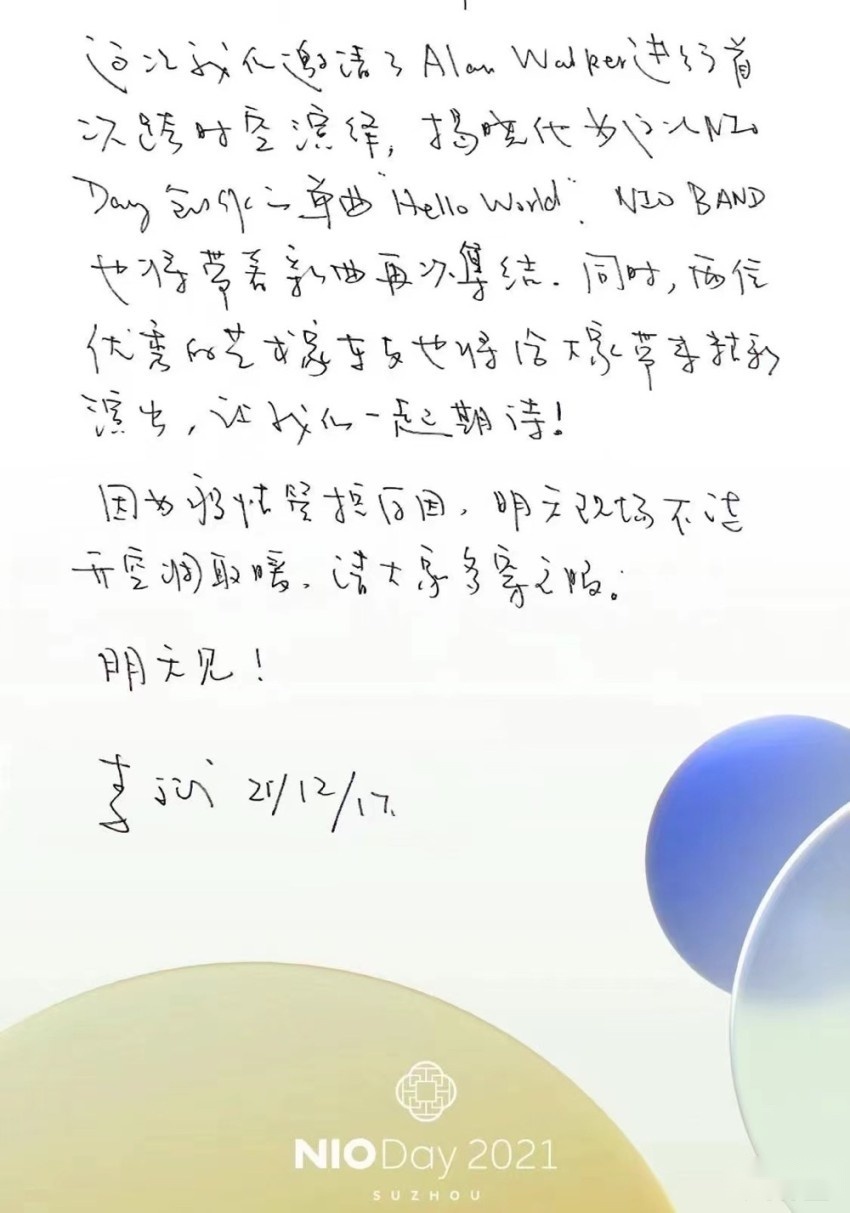 这次我们邀请了Alan Walker进行首
次跨时空演绎，揭晓他为这次NIO
Day创作的单曲"Hello World"．NIO BAND
也将带着新曲再次集结．同时，两位
优秀的艺术家车友也将给大家带来精彩
演出，让我们一起期待！
因为疫情管控原因，明天现场不能
开空调取暖．请大家多穿衣服。
明天见！
李斌 21/12/17.
NIO Day 2021
SUZHOU